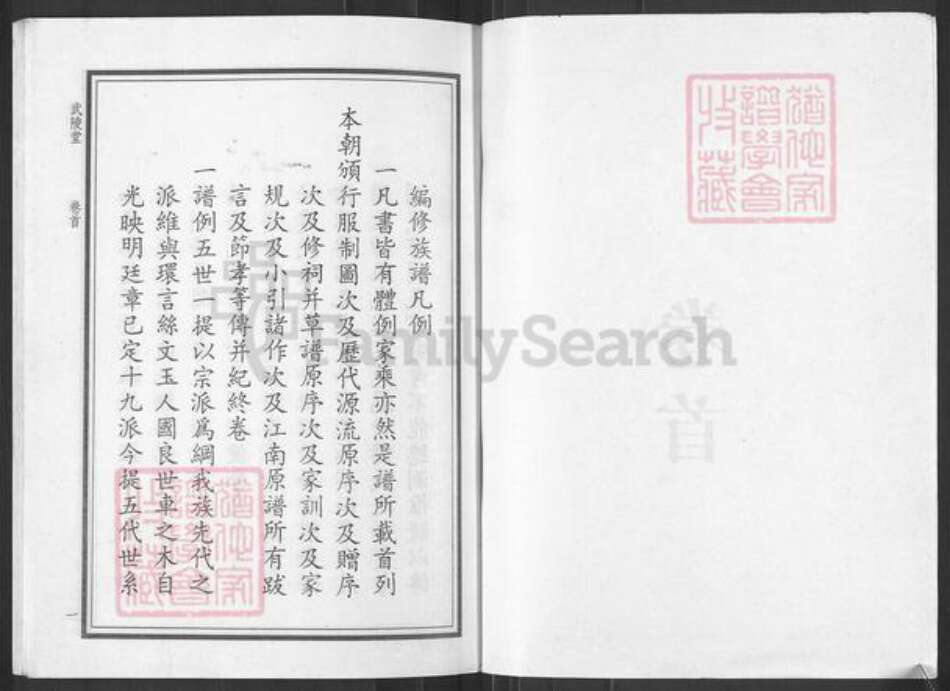 編修族譜凡例
一凡書皆有體例家乘亦然是譜所載首列
本朝頒行服制圖次及歷代源流原序次及贈序
次及修祠并草譜原序次及家訓次及家
規次及小引諸作次及江南原譜所有跋
言及節孝等傳并紀終卷
一譜例五世一提以宗派為綱我族先代之
派維與環言絲文玉人國良世車之木自
光映明廷章已定十九派今提五代世系
武陵堂
卷首
一
FamilySearch
猶他家
譜學會
收藏
猶他家
譜學會
收藏